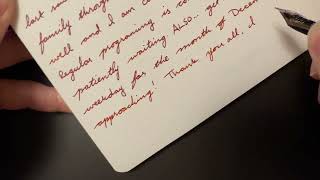 last sum
family through
well and I am co
regular programing is co
patiently waiting ALSO.. get
weekday for the month of Decem
approaching! Thank you all. I